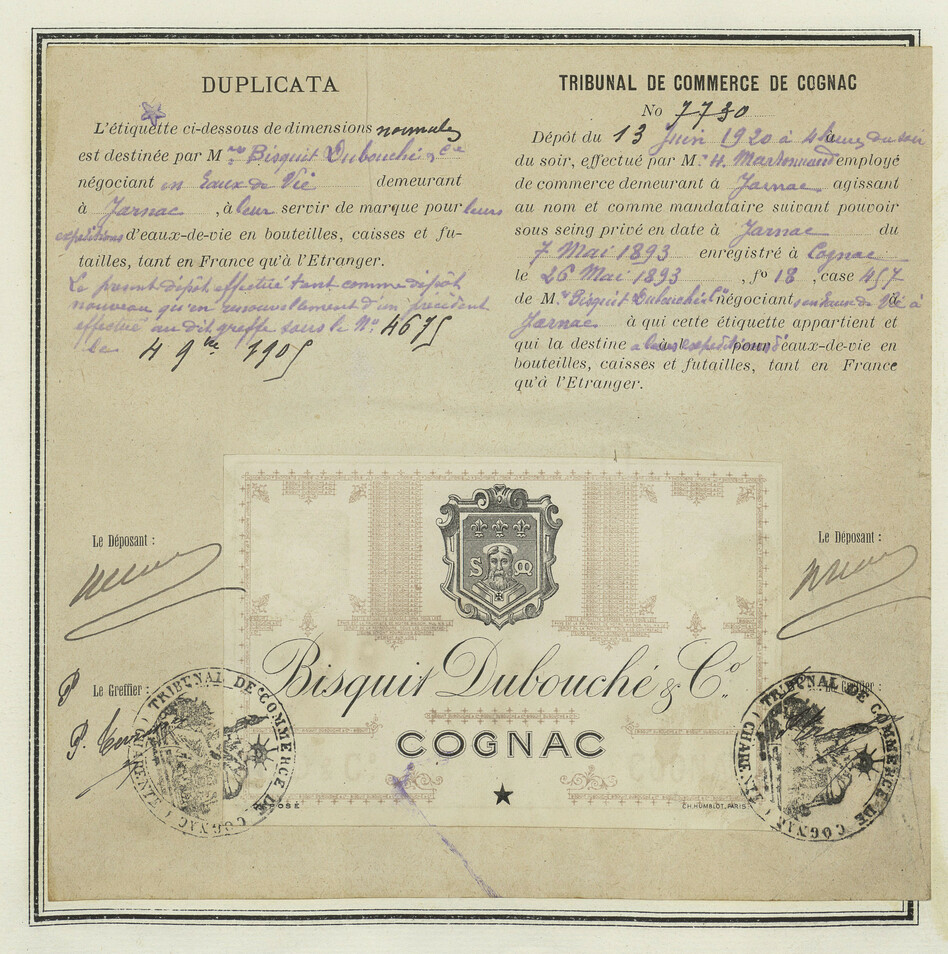 DUPLICATA
L'étiquette ci-dessous de dimensions normales
est destinée par Mrs Bisquit Dubouché & Cie
négociant en Eaux de Vie demeurant
à Jarnac, à leur servir de marque pour leurs
expéditions d'eaux-de-vie en bouteilles, caisses et fu-
tailles, tant en France qu'à l'Etranger.
Le présent dépôt effectué tant comme dépôt
nouveau qu'en renouvellement d'un précédent
effectué au dit greffe sous le No 4675
le 4 9bre 1905
TRIBUNAL DE COMMERCE DE COGNAC
No 7730
Dépôt du 13 Juin 1920 à 4 heures du soir
du soir, effectué par M. H. employé
de commerce demeurant à Jarnac agissant
au nom et comme mandataire suivant pouvoir
sous seing privé en date à Jarnac du
7 Mai 1893 enregistré à Cognac
le 26 Mai 1893, fo 18, case 457
de Mrs Bisquit Dubouché & Cie négociant en Eaux de Vie à
Jarnac à qui cette étiquette appartient et
qui la destine à leurs expéditions d'eaux-de-vie en
bouteilles, caisses et futailles, tant en France
qu'à l'Etranger.
Le Déposant :
Le Déposant :
Bisquit Dubouché & Co.
COGNAC
★
S M
CH. HUMBLOT, PARIS.
Le Greffier :
P.
TRIBUNAL DE COMMERCE DE COGNAC (CHARENTE)
Le Greffier :
TRIBUNAL DE COMMERCE DE COGNAC (CHARENTE)